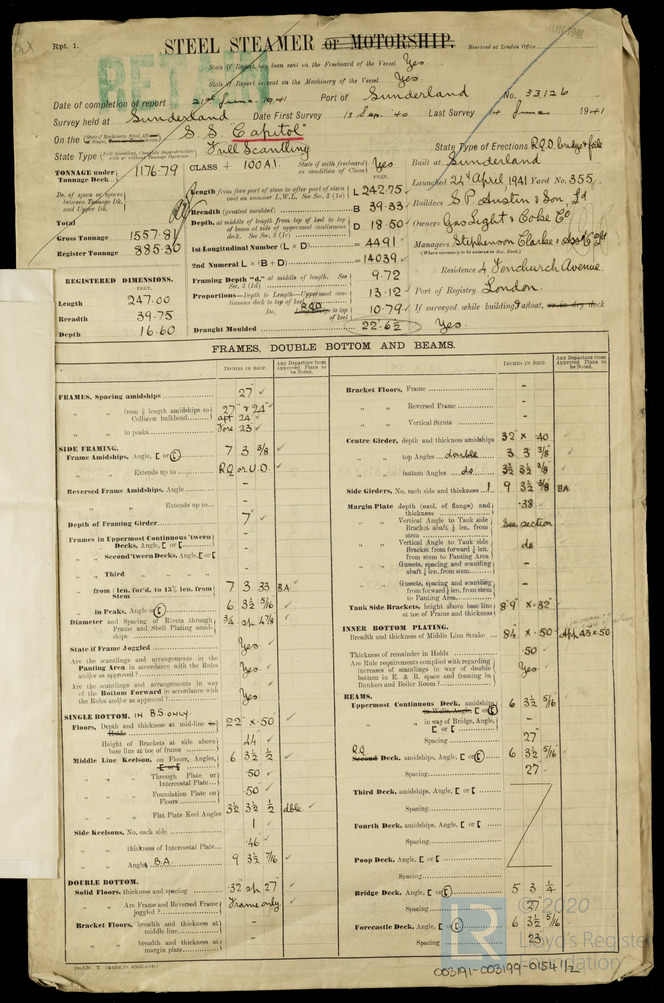 Rpt. 1.
STEEL STEAMER or MOTORSHIP.
Received at London Office
State if Report has been sent on the Freeboard of the Vessel Yes
State if Report is sent on the Machinery of the Vessel Yes.
Date of completion of report 21st June 1941 Port of Sunderland No. 33,126
Survey held at Sunderland Date First Survey 13 Sep. 40 Last Survey June 1941
On the S.S. "Capitol" State Type of Erections R.Q.D. bridge & fcle
State Type Full Scantling
TONNAGE under Tonnage Deck 1176.79
CLASS + 100A1. State if with freeboard as condition of Class Yes
Built at Sunderland
Launched 24th April, 1941 Yard No. 355
Builders S P Austin & Son, Ld
Owners Gas Light & Coke Co
Managers Stephenson Clarke & Assd Cos Ld
(Where necessary to be entered in Reg. Book.)
Residence 4 Fenchurch Avenue
London.
Port of Registry London.
If surveyed while building, afloat, or in dry dock
Yes.
Do. of space or spaces between Tonnage Dk. and Upper Dk.
Total
Gross Tonnage 1557.81
Register Tonnage 885.30
REGISTERED DIMENSIONS.
FEET.
Length 247.00
Breadth 39.75
Depth 16.60
Length from fore part of stem to after part of stern post on summer L.W.L. See Sec. 3 (1a) L 242.75
Breadth (greatest moulded) B 39.33
Depth, at middle of length from top of keel to top of beam at side of uppermost continuous deck. See Sec. 3 (1c) D 18.50
1st Longitudinal Number (L × D) = 4491
2nd Numeral L × (B + D) = 14039
Framing Depth "d," at middle of length. See Sec. 3 (1d) 9.72
Proportions—Depth to Length—Uppermost continuous deck to top of keel 13.12
Do. R.Q.D. to top of keel 10.79
Draught Moulded 22'.6½
FRAMES, DOUBLE BOTTOM AND BEAMS.
INCHES IN SHIP.
Any Departure from Approved Plans to be Noted.
INCHES IN SHIP.
Any Departure from Approved Plans to be Noted.
FRAMES, Spacing amidships 27"
" " from ¾ length amidships to Collision bulkhead 27" & 24"
" " in peaks aft 24" Fore 23"
SIDE FRAMING.
Frame Amidships, Angle, [ or [ 7 3 3/8
" " Extends up to R.Q or U.D.
Reversed Frame Amidships, Angle -
" " Extends up to -
Depth of Framing Girder 7"
Frames in Uppermost Continuous 'tween Decks, Angle, [ or [ -
" " Second 'tween Decks, Angle, [ or [ -
" " Third " " " -
" from ¾ len. for'd. to 15% len. from Stem 7 3 33 BA
" in Peaks, Angle or [ 6 3½ 5/16
Diameter and Spacing of Rivets through Frame and Shell Plating amidships ¾ sp 4 7/8
State if Frame Joggled Yes
Are the scantlings and arrangements in the Panting Area in accordance with the Rules and/or as approved? Yes
Are the scantlings and arrangements in way of the Bottom Forward in accordance with the Rules and/or as approved? Yes
SINGLE BOTTOM. IN B.S. ONLY.
Floors, Depth and thickness at mid-line in Holds 22" × .50
Height of Brackets at side above base line at toe of frame 44
Middle Line Keelson, on Floors, Angles, [ or [ 6 3½ ½
" " Through Plate or Intercostal Plate .50
" " Foundation Plate on Floors .50
" " Flat Plate Keel Angles 3½ 3½ ½ dble
Side Keelsons, No. each side 1
" " thickness of Intercostal Plate .46
" " Angles B.A. 9 3½ 7/16
DOUBLE BOTTOM.
Solid Floors, thickness and spacing .32 sp 27"
" " Are Frame and Reversed Frame joggled? Frame only
Bracket Floors, breadth and thickness at middle line -
" " breadth and thickness at margin plate -
Bracket Floors, Frame -
" " Reversed Frame -
" " Vertical Struts -
Centre Girder, depth and thickness amidships 32" × .40
" " top Angles double 3 3 3/8
" " bottom Angles do 3½ 3½ 3/8
Side Girders, No. each side and thickness 1 9 3½ 3/8 BA
Margin Plate depth (excl. of flange) and thickness .38
" " Vertical Angle to Tank side Bracket abaft ¼ len. from stem See section
" " Vertical Angle to Tank side Bracket from forward ¼ len. from stem to Panting Area do
" " Gussets, spacing and scantling abaft ¼ len. from stem -
" " Gussets, spacing and scantling from forward ¼ len. from stem to Panting Area -
Tank Side Brackets, height above base line at toe of Frame and thickness 8'9" × .32"
INNER BOTTOM PLATING.
Breadth and thickness of Middle Line Strake 84" × .50 App 43 × .50
Thickness of remainder in Holds .50
Are Rule requirements complied with regarding increases of scantlings in way of double bottom in E. & B. space and framing in Bunkers and Boiler Room? Yes
BEAMS.
Uppermost Continuous Deck, amidships in Wells, Angle, [ or [ 6 3½ 5/16
" " in way of Bridge, Angle, [ or [ -
Spacing 27"
R.Q. Second Deck, amidships, Angle, [ or [ 6 3½ 5/16
Spacing 27"
Third Deck, amidships, Angle, [ or [
Spacing
Fourth Deck, amidships, Angle, [ or [
Spacing
Poop Deck, Angle, [ or [
Spacing
Bridge Deck, Angle, [ or [ 5 3 ¼
Spacing 27"
Forecastle Deck, Angle, [ or [ 6 3½ 5/16
Spacing 23"
(MADE IN ENGLAND.)
003191-003199-0154 1/2
LR
© 2020
Lloyd's Register
Foundation